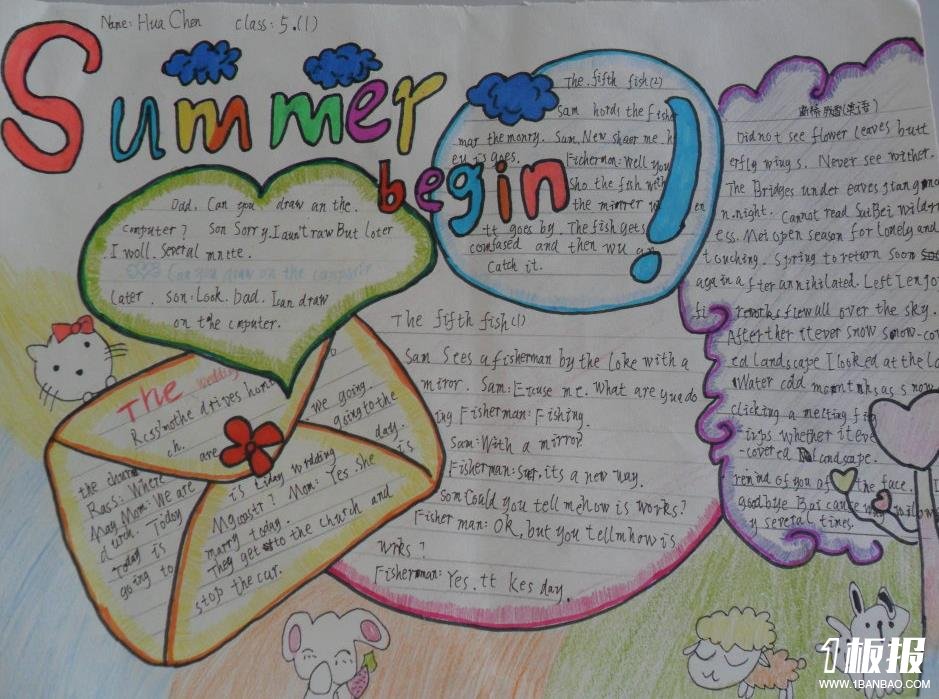 Name: Hua Chen class: 5.(1)
Summer
begin!
Dad. Can you draw an the.
computer? Son Sorry. I aun't raw But loter
I woll. Several mntte.
Can you draw on the computer
later. son: Look. Dad. I can draw
on the cmputer.
The fifth fish(2)
Sam hords the fisher
mar the monry. Sam. New shaer me h
eu is goes. Fisherman: Well you
sho the fish with
the mirrer w en
tt goes by. The fish gets
comfased and then wu an
Catch it.
The fifth fish(1)
Sam Sees a fisherman by the loke with a
miror. Sam: Excuse me. What are you do
ing Fisherman: Fishing.
Sam: With a mirrop
Fisherman: Suer, its a new way.
som Could you tell me how is works?
Fisher man: Ok, but you tell m how is
wrks?
Fisherman: Yes. tt kes day.
The wedding
Ross' mothe drives hom
ch. are we going.
the church going to the
Rass: Where day.
May Mom: We are is today wedding
durch. Today Mgwastr? Mom: Yes. She is
Today is marry today.
going to They get to the church and
stop the car.
断桥残雪(英语)
Did not see flower leaves butt
erfly wings. Never see wither.
The Bridges under eaves Jiangnan
n. night. Cannot read Su Bei wilder
ess. Mei open season for lonely and
touching. Spring to return soon
again a fter annihilated. Left I enjoy
fi reworks flew all over the sky.
After ther it ever snow snow-cover
ed Landscape I looked at the la
Water cold
clicking a melting
whether it eve
-covered landscape.
remind of you of the face. I
goodbye Bai cause way willow
y several times.
1板报
WWW.1BANBAO.COM